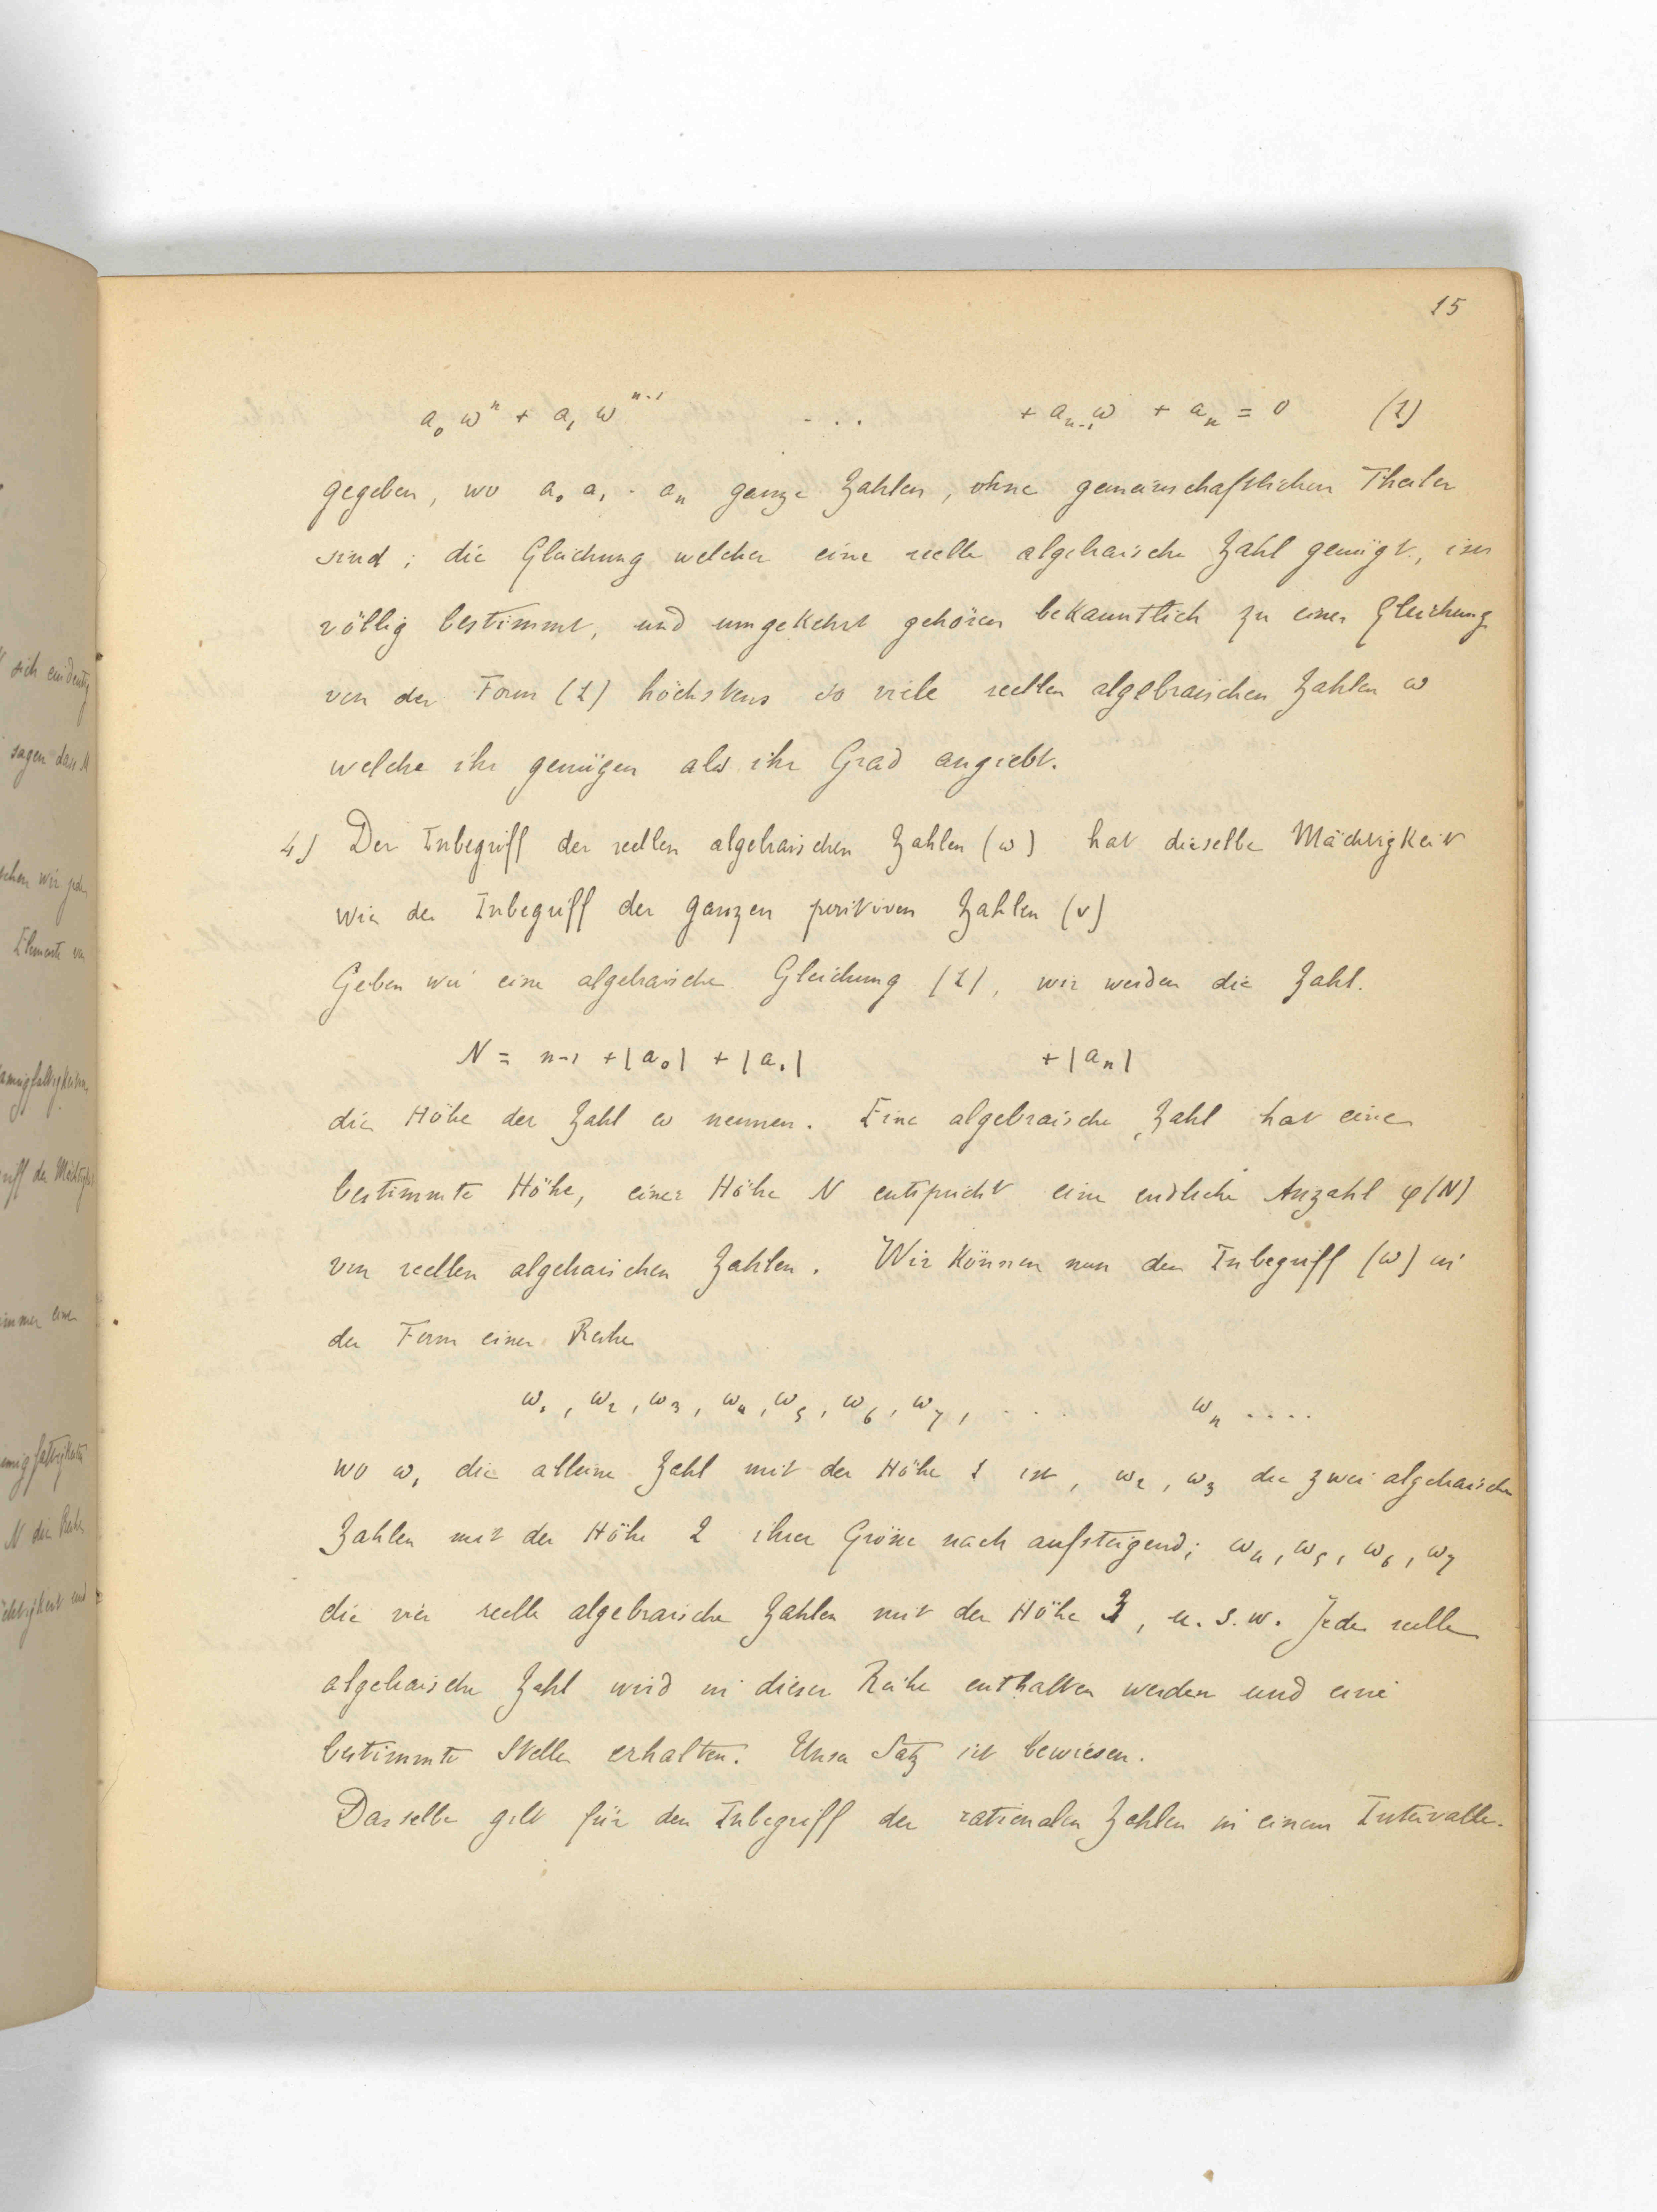 15
a₀ ωⁿ + a₁ ωⁿ⁻¹ . . . + aₙ₋₁ω + aₙ = 0 (1)
gegeben, wo a₀ a₁ . aₙ ganze Zahlen, ohne gemeinschaftlichen Theiler
sind; die Gleichung welcher eine reelle algebraische Zahl genügt, ist
völlig bestimmt, und umgekehrt gehören bekanntlich zu einer Gleichung
von der Form (1) höchstens so viele reellen algebraischen Zahlen ω
welche ihr genügen als ihr Grad angiebt.
4) Der Inbegriff der reellen algebraischen Zahlen (ω) hat dieselbe Mächtigkeit
wie der Inbegriff der ganzen positiven Zahlen (ν)
Geben wir eine algebraische Gleichung (1), wir werden die Zahl.
N = n-1 + |a₀| + |a₁| + |aₙ|
die Höhe der Zahl ω nennen. Eine algebraische Zahl hat eine
bestimmte Höhe, einer Höhe N entspricht eine endliche Anzahl φ(N)
von reellen algebraischen Zahlen. Wir können nun den Inbegriff (ω) in
der Form einer Reihe
ω₁, ω₂, ω₃, ω₄, ω₅, ω₆, ω₇, . . . ωₙ ....
wo ω₁ die alleine Zahl mit der Höhe 1 ist, ω₂, ω₃ die zwei algebraische
Zahlen mit der Höhe 2 ihrer Grösse nach aufsteigend; ω₄, ω₅, ω₆, ω₇
die vier reelle algebraische Zahlen mit der Höhe 3, u. s. w. Jede reelle
algebraische Zahl wird in dieser Reihe enthalten werden und eine
bestimmte Stelle erhalten. Unser Satz ist bewiesen.
Dasselbe gilt für den Inbegriff der rationalen Zahlen in einem Intervalle.
sich eindeutig
sagen dass M
schen wir jeden
Elemente von
annigfaltigkeiten
riff der Mächtigkeit
immer einen
N die Reihe
ächtigkeit und